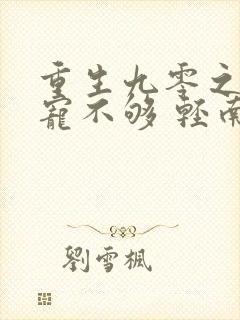 重生九零之
宠不够 轻南
劉雪楓